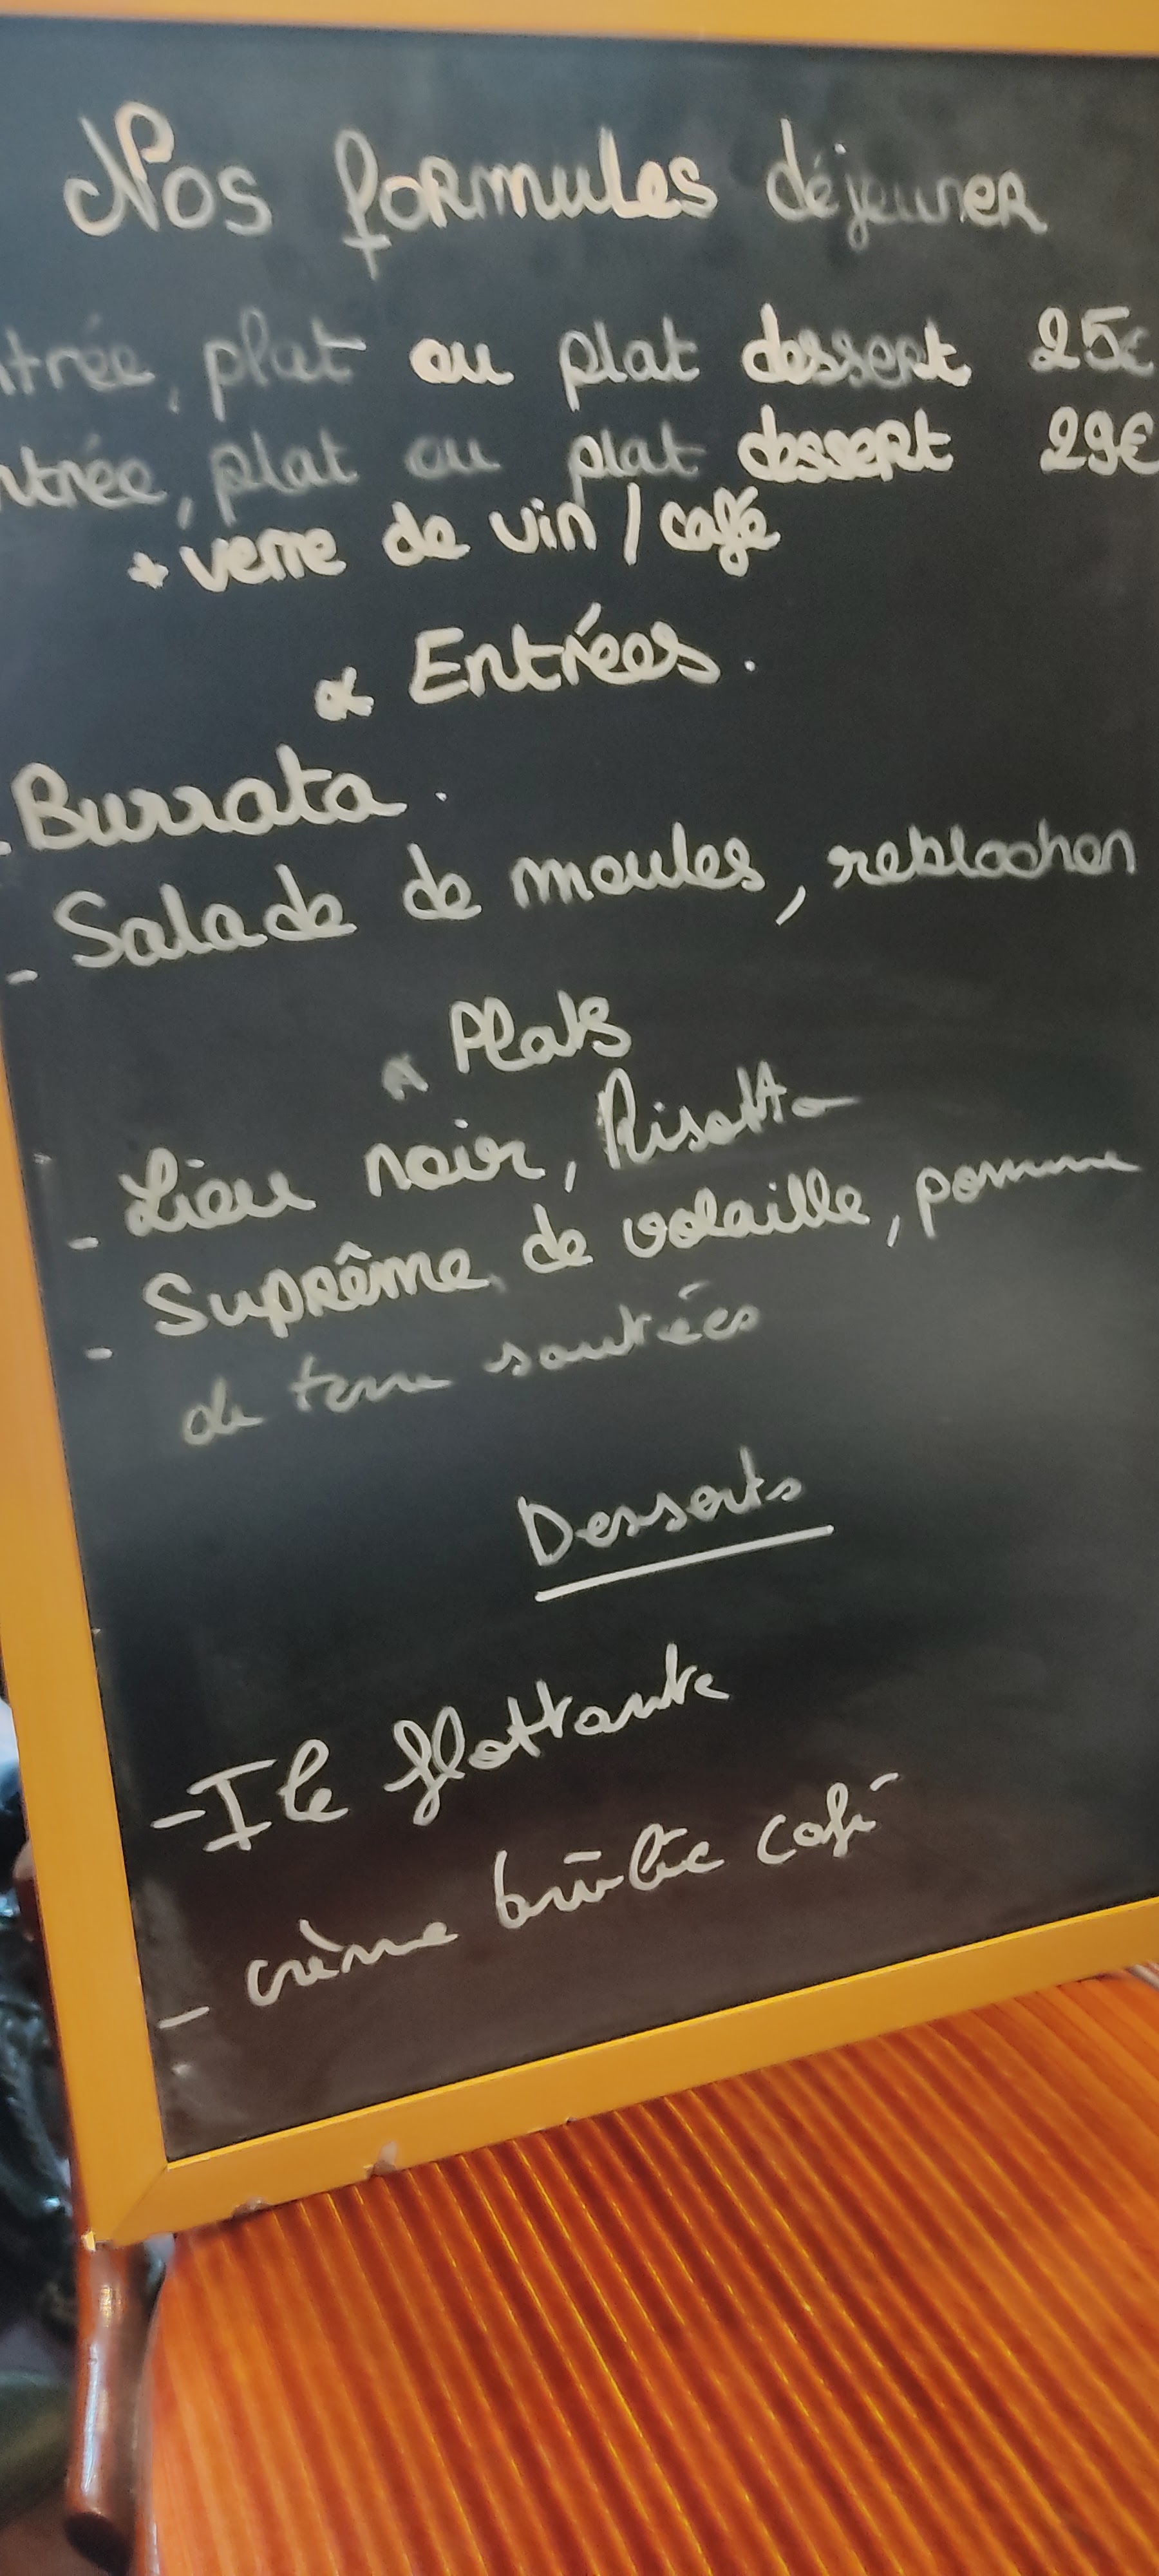 Nos formules déjeuner
ntrée, plat ou plat dessert 25€
ntrée, plat ou plat dessert 29€
+ verre de vin / café
* Entrées.
- Burrata.
- Salade de moules, reblochon
* Plats
- Lieu noir, Risotto
- Suprême de volaille, pomme
de terre sautées
Desserts
- Ile flottante
- crème brûlée café